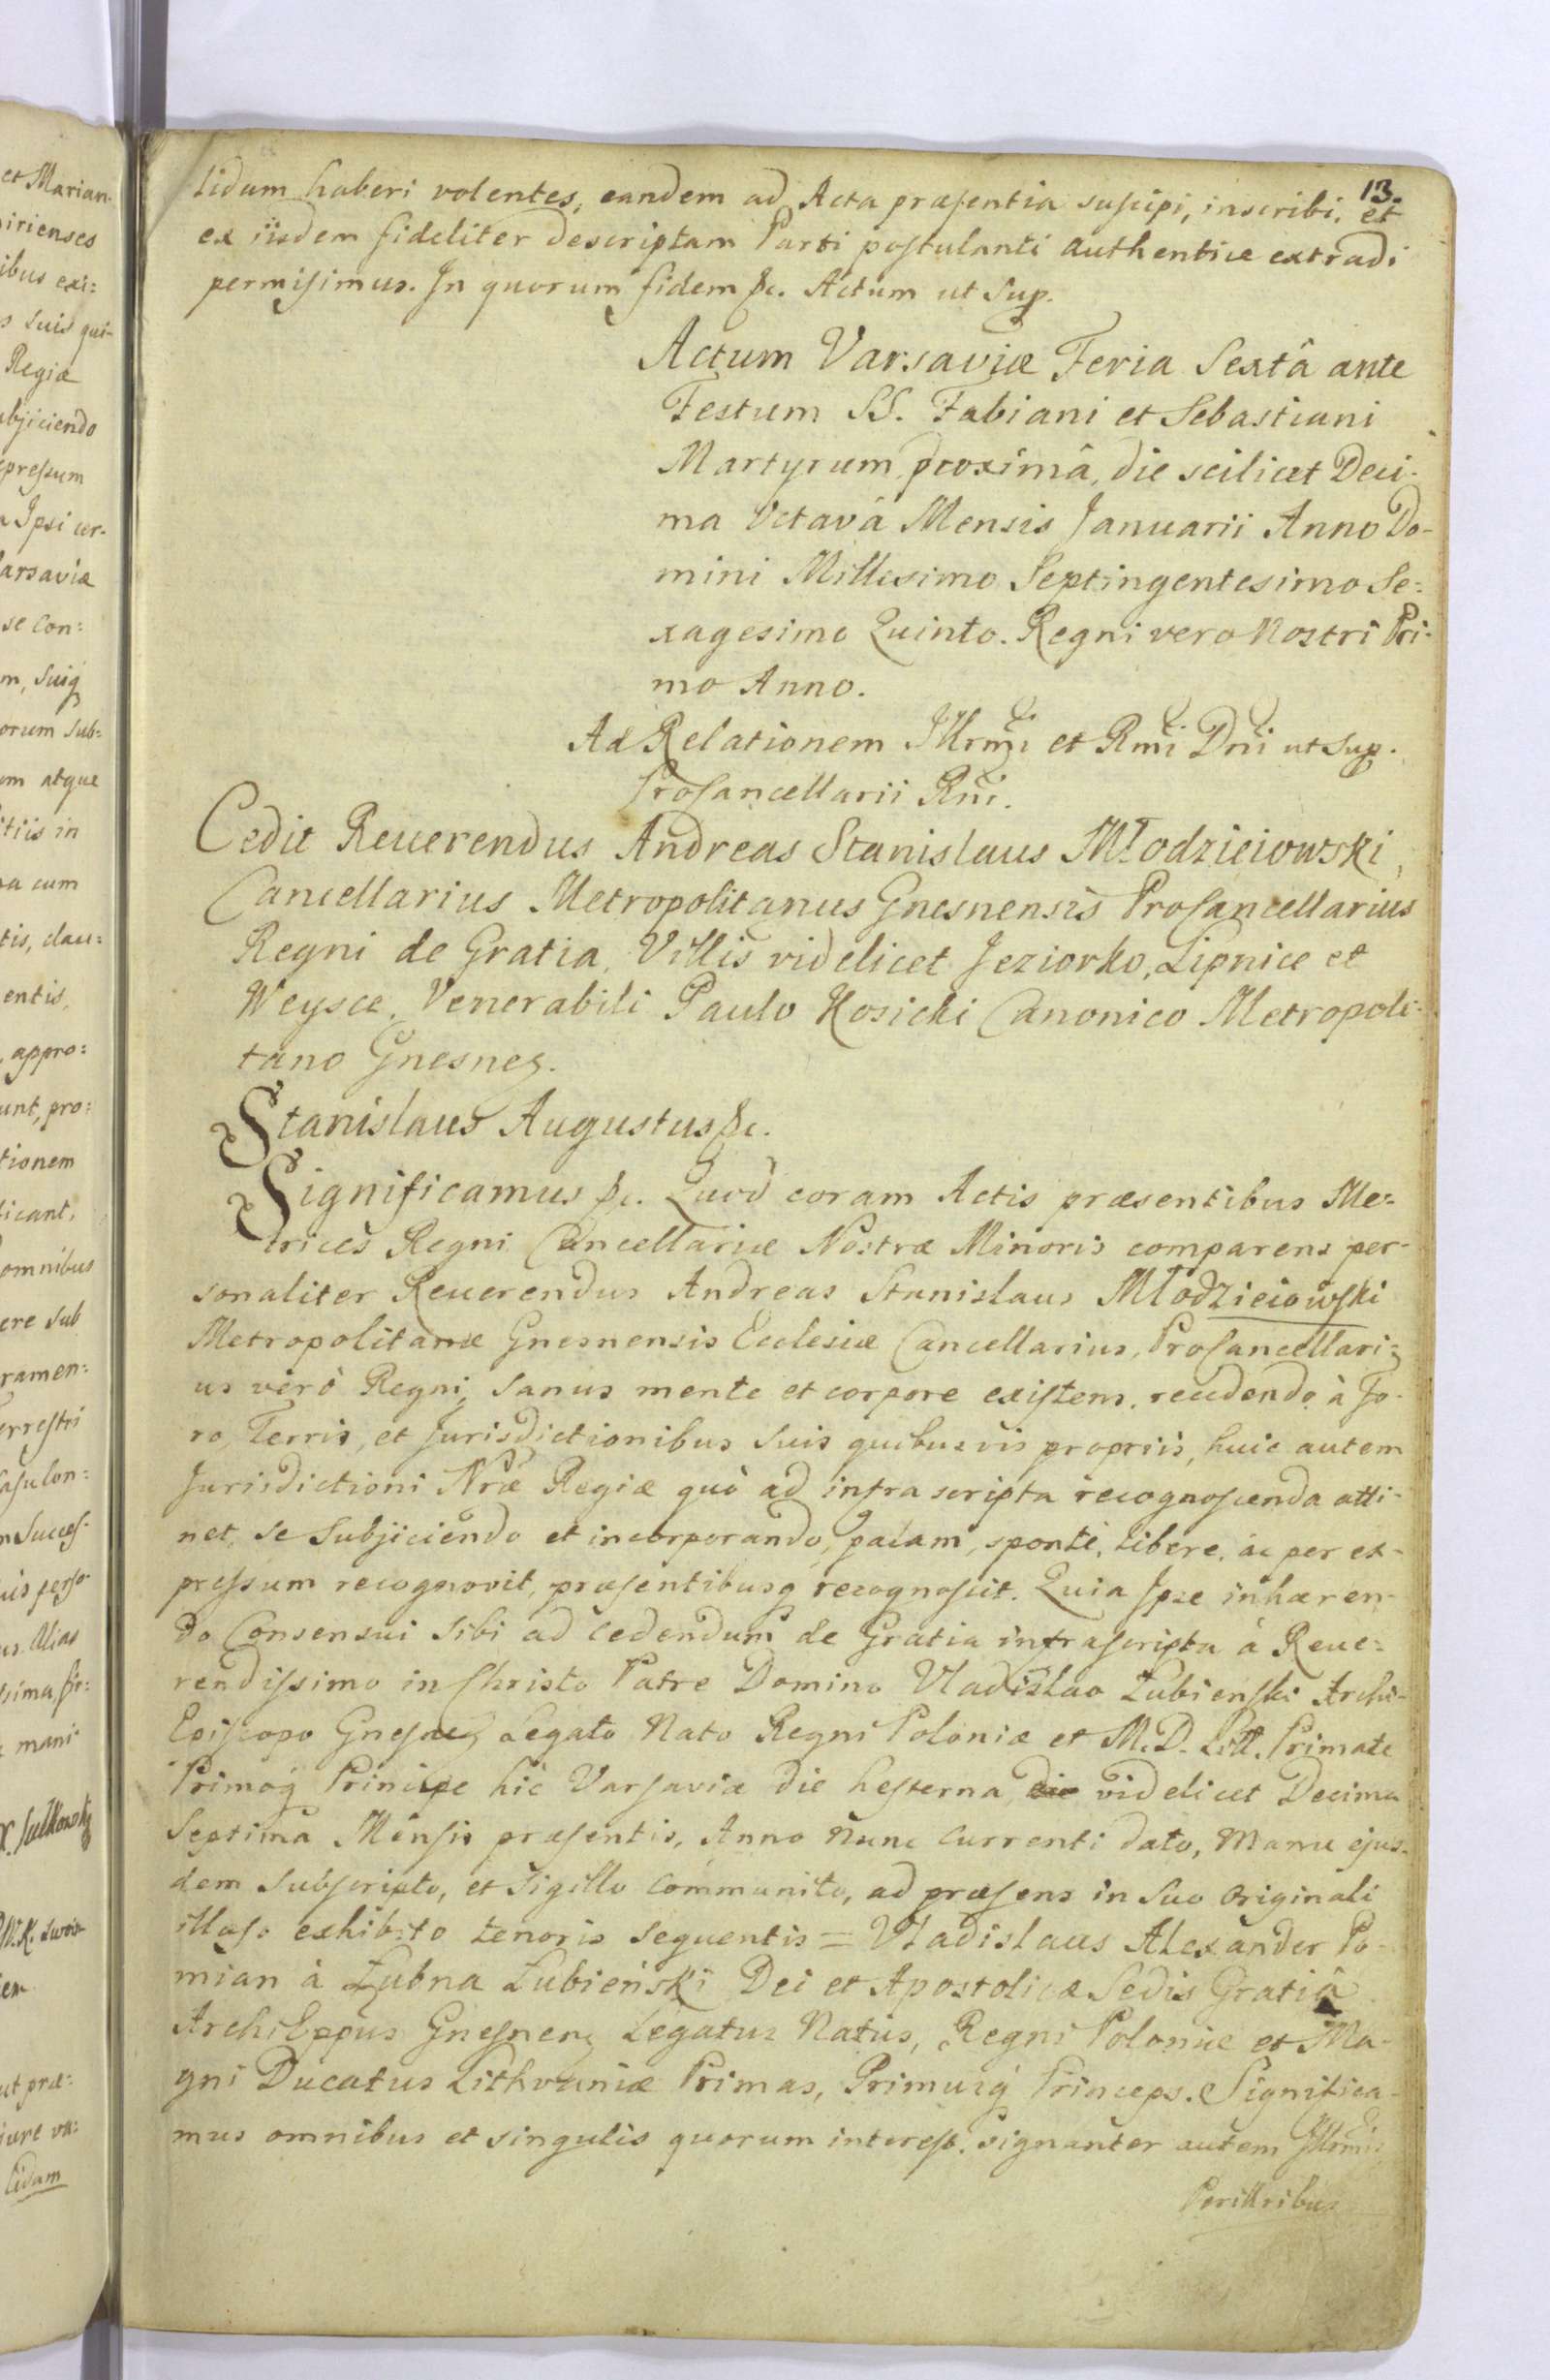 13.
lidum haberi volentes, eandem ad Acta præsentia suscipi, inscribi, et
ex iisdem fideliter descriptam Parti postulanti authentice extradi
permisimus. In quorum fidem &c. Actum ut Sup.
Actum Varsaviæ Feria Sextâ ante
Festum SS. Fabiani et Sebastiani
Martyrum proximâ, die scilicet Deci-
ma Octavâ Mensis Januarii Anno Do-
mini Millesimo Septingentesimo Se=
xagesimo Quinto. Regni vero Nostri Pri-
mo Anno.
Ad Relationem Illrmi et Rmi Dni ut Sup.
ProCancellarii Rni.
Cedit Reuerendus Andreas Stanislaus Młodzieiowski,
Cancellarius Metropolitanus Gnesnensis ProCancellarius
Regni de Gratia, Villis videlicet Jeziorko, Lipnice et
Weysce, Venerabili Paulo Kosicki Canonico Metropoli-
tano Gnesnen.
Stanislaus Augustus &c.
Significamus &c. Quod coram Actis præsentibus Me-
trices Regni Cancellariæ Nostræ Minoris comparens per-
sonaliter Reuerendus Andreas Stanislaus Młodzieiowski
Metropolitanæ Gnesnensis Ecclesiæ Cancellarius, ProCancellari=
us verò Regni, sanus mente et corpore existens, recedendo à Fo-
ro, Terris, et Jurisdictionibus suis quibusvis propriis, huic autem
Jurisdictioni Nræ Regiæ quò ad infra scripta recognoscenda atti-
net, se Subjiciendo et incorporando, palam, sponte, libere, ac per ex-
pressum recognovit, præsentibusq recognoscit. Quia Ipse inhæren-
do Consensui Sibi ad cedendum de Gratia infrascripta à Reue=
rendissimo in Christo Patre Domino Vladislao Łubienski Archi-
Episcopo Gnesnen, Legato Nato Regni Poloniæ et M. D. Litt. Primate
Primoq Principe hic Varsaviæ die hesterna die videlicet Decima
Septima Mensis præsentis, Anno nunc currenti dato, Manu ejus-
dem Subscripto, et Sigillo communito, ad præsens in suo originali
illæso exhibito tenoris sequentis = Vladislaus Alexander Po-
mian à Łubna Łubieński Dei et Apostolicæ Sedis Gratiâ
ArchiEppus Gnesnen, Legatus Natus, Regni Poloniæ et Ma-
gni Ducatus Lithvaniæ Primas, Primusq Princeps. Significa-
mus omnibus et singulis quorum interest, signanter autem Illrmis
Perillribus
et Marian-
irienses
ibus exi=
suis qui-
Regiæ
bjiciendo
pressum
Ipsi cer-
arsaviæ
se Con=
m, Suiq
orum sub=
om atque
itiis in
a cum
tis, clau=
entis,
appro=
unt, pro=
tionem
icant,
omnibus
ere sub
ramen=
errestri
n Succes-
us. Alias
mani
ut præ=
iure va=
lidam